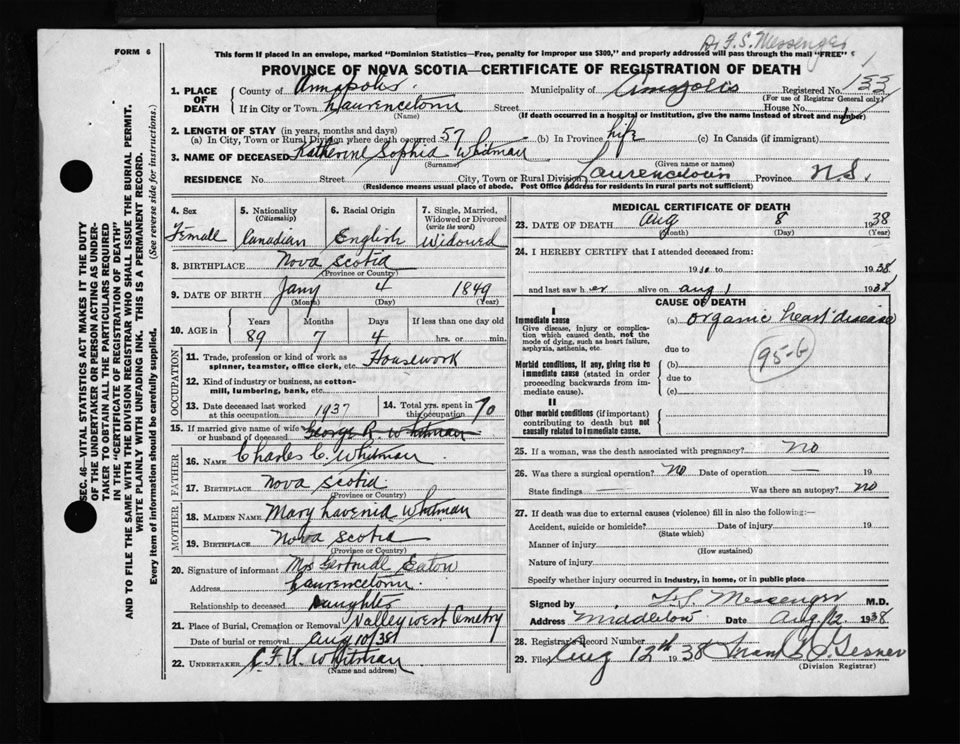 Dr F. S. Messenger
FORM 6
This form if placed in an envelope, marked "Dominion Statistics—Free, penalty for improper use $300," and properly addressed will pass through the mail "FREE"
PROVINCE OF NOVA SCOTIA—CERTIFICATE OF REGISTRATION OF DEATH
1. PLACE OF DEATH
County of Annapolis Municipality of Annapolis Registered No. 133
(For use of Registrar General only)
If in City or Town Laurencetown Street House No.
(Name) (If death occurred in a hospital or institution, give the name instead of street and number)
2. LENGTH OF STAY (in years, months and days)
(a) In City, Town or Rural Division where death occurred 57 (b) In Province life (c) In Canada (if immigrant)
3. NAME OF DECEASED Katherine Sophia Whitman
(Surname) (Given name or names)
RESIDENCE No. Street City, Town or Rural Division Laurencetown Province N.S.
(Residence means usual place of abode. Post Office Address for residents in rural parts not sufficient)
4. Sex Female
5. Nationality (Citizenship) Canadian
6. Racial Origin English
7. Single, Married, Widowed or Divorced (write the word) Widowed
8. BIRTHPLACE Nova Scotia
(Province or Country)
9. DATE OF BIRTH Jany 4 1849
(Month) (Day) (Year)
10. AGE in Years Months Days If less than one day old
89 7 4 hrs. or min.
OCCUPATION
11. Trade, profession or kind of work as spinner, teamster, office clerk, etc. Housework
12. Kind of industry or business, as cotton-mill, lumbering, bank, etc.
13. Date deceased last worked at this occupation 1937
14. Total yrs. spent in this occupation 70
15. If married give name of wife or husband of deceased George R Whitman
FATHER
16. NAME Charles C. Whitman
17. BIRTHPLACE Nova Scotia
(Province or Country)
MOTHER
18. MAIDEN NAME Mary Lavenia Whitman
19. BIRTHPLACE Nova Scotia
(Province or Country)
20. Signature of informant Mrs Gertrude Eaton
Address Laurencetown
Relationship to deceased Daughter
21. Place of Burial, Cremation or Removal Valleywest Cemetry
Date of burial or removal Aug 10/38
22. UNDERTAKER C. F. W. Whitman
(Name and address)
MEDICAL CERTIFICATE OF DEATH
23. DATE OF DEATH Aug 8 1938
(Month) (Day) (Year)
24. I HEREBY CERTIFY that I attended deceased from:
1938 to 1938
and last saw her alive on Aug 1 1938
CAUSE OF DEATH
I
Immediate cause (a) organic heart disease
Give disease, injury or complication which caused death, not the mode of dying, such as heart failure, asphyxia, asthenia, etc.
due to
95-b
Morbid conditions, if any, giving rise to immediate cause (stated in order proceeding backwards from immediate cause).
(b)
due to
(c)
II
Other morbid conditions (if important) contributing to death but not causally related to immediate cause.
25. If a woman, was the death associated with pregnancy? no
26. Was there a surgical operation? no Date of operation — 19
State findings Was there an autopsy? no
27. If death was due to external causes (violence) fill in also the following:—
Accident, suicide or homicide? Date of injury 19
(State which)
Manner of injury
(How sustained)
Nature of injury
Specify whether injury occurred in Industry, in home, or in public place
Signed by F S Messenger M.D.
Address Middleton Date Aug. 12 1938
28. Registrar's Record Number
29. Filed Aug 12th 1938 Gesner
(Division Registrar)
SEC. 46—VITAL STATISTICS ACT MAKES IT THE DUTY
OF THE UNDERTAKER OR PERSON ACTING AS UNDERTAKER TO OBTAIN ALL THE PARTICULARS REQUIRED
IN THE "CERTIFICATE OF REGISTRATION OF DEATH"
AND TO FILE THE SAME WITH THE DIVISION REGISTRAR WHO SHALL ISSUE THE BURIAL PERMIT.
WRITE PLAINLY WITH UNFADING INK. THIS IS A PERMANENT RECORD.
Every item of information should be carefully supplied. (See reverse side for instructions.)